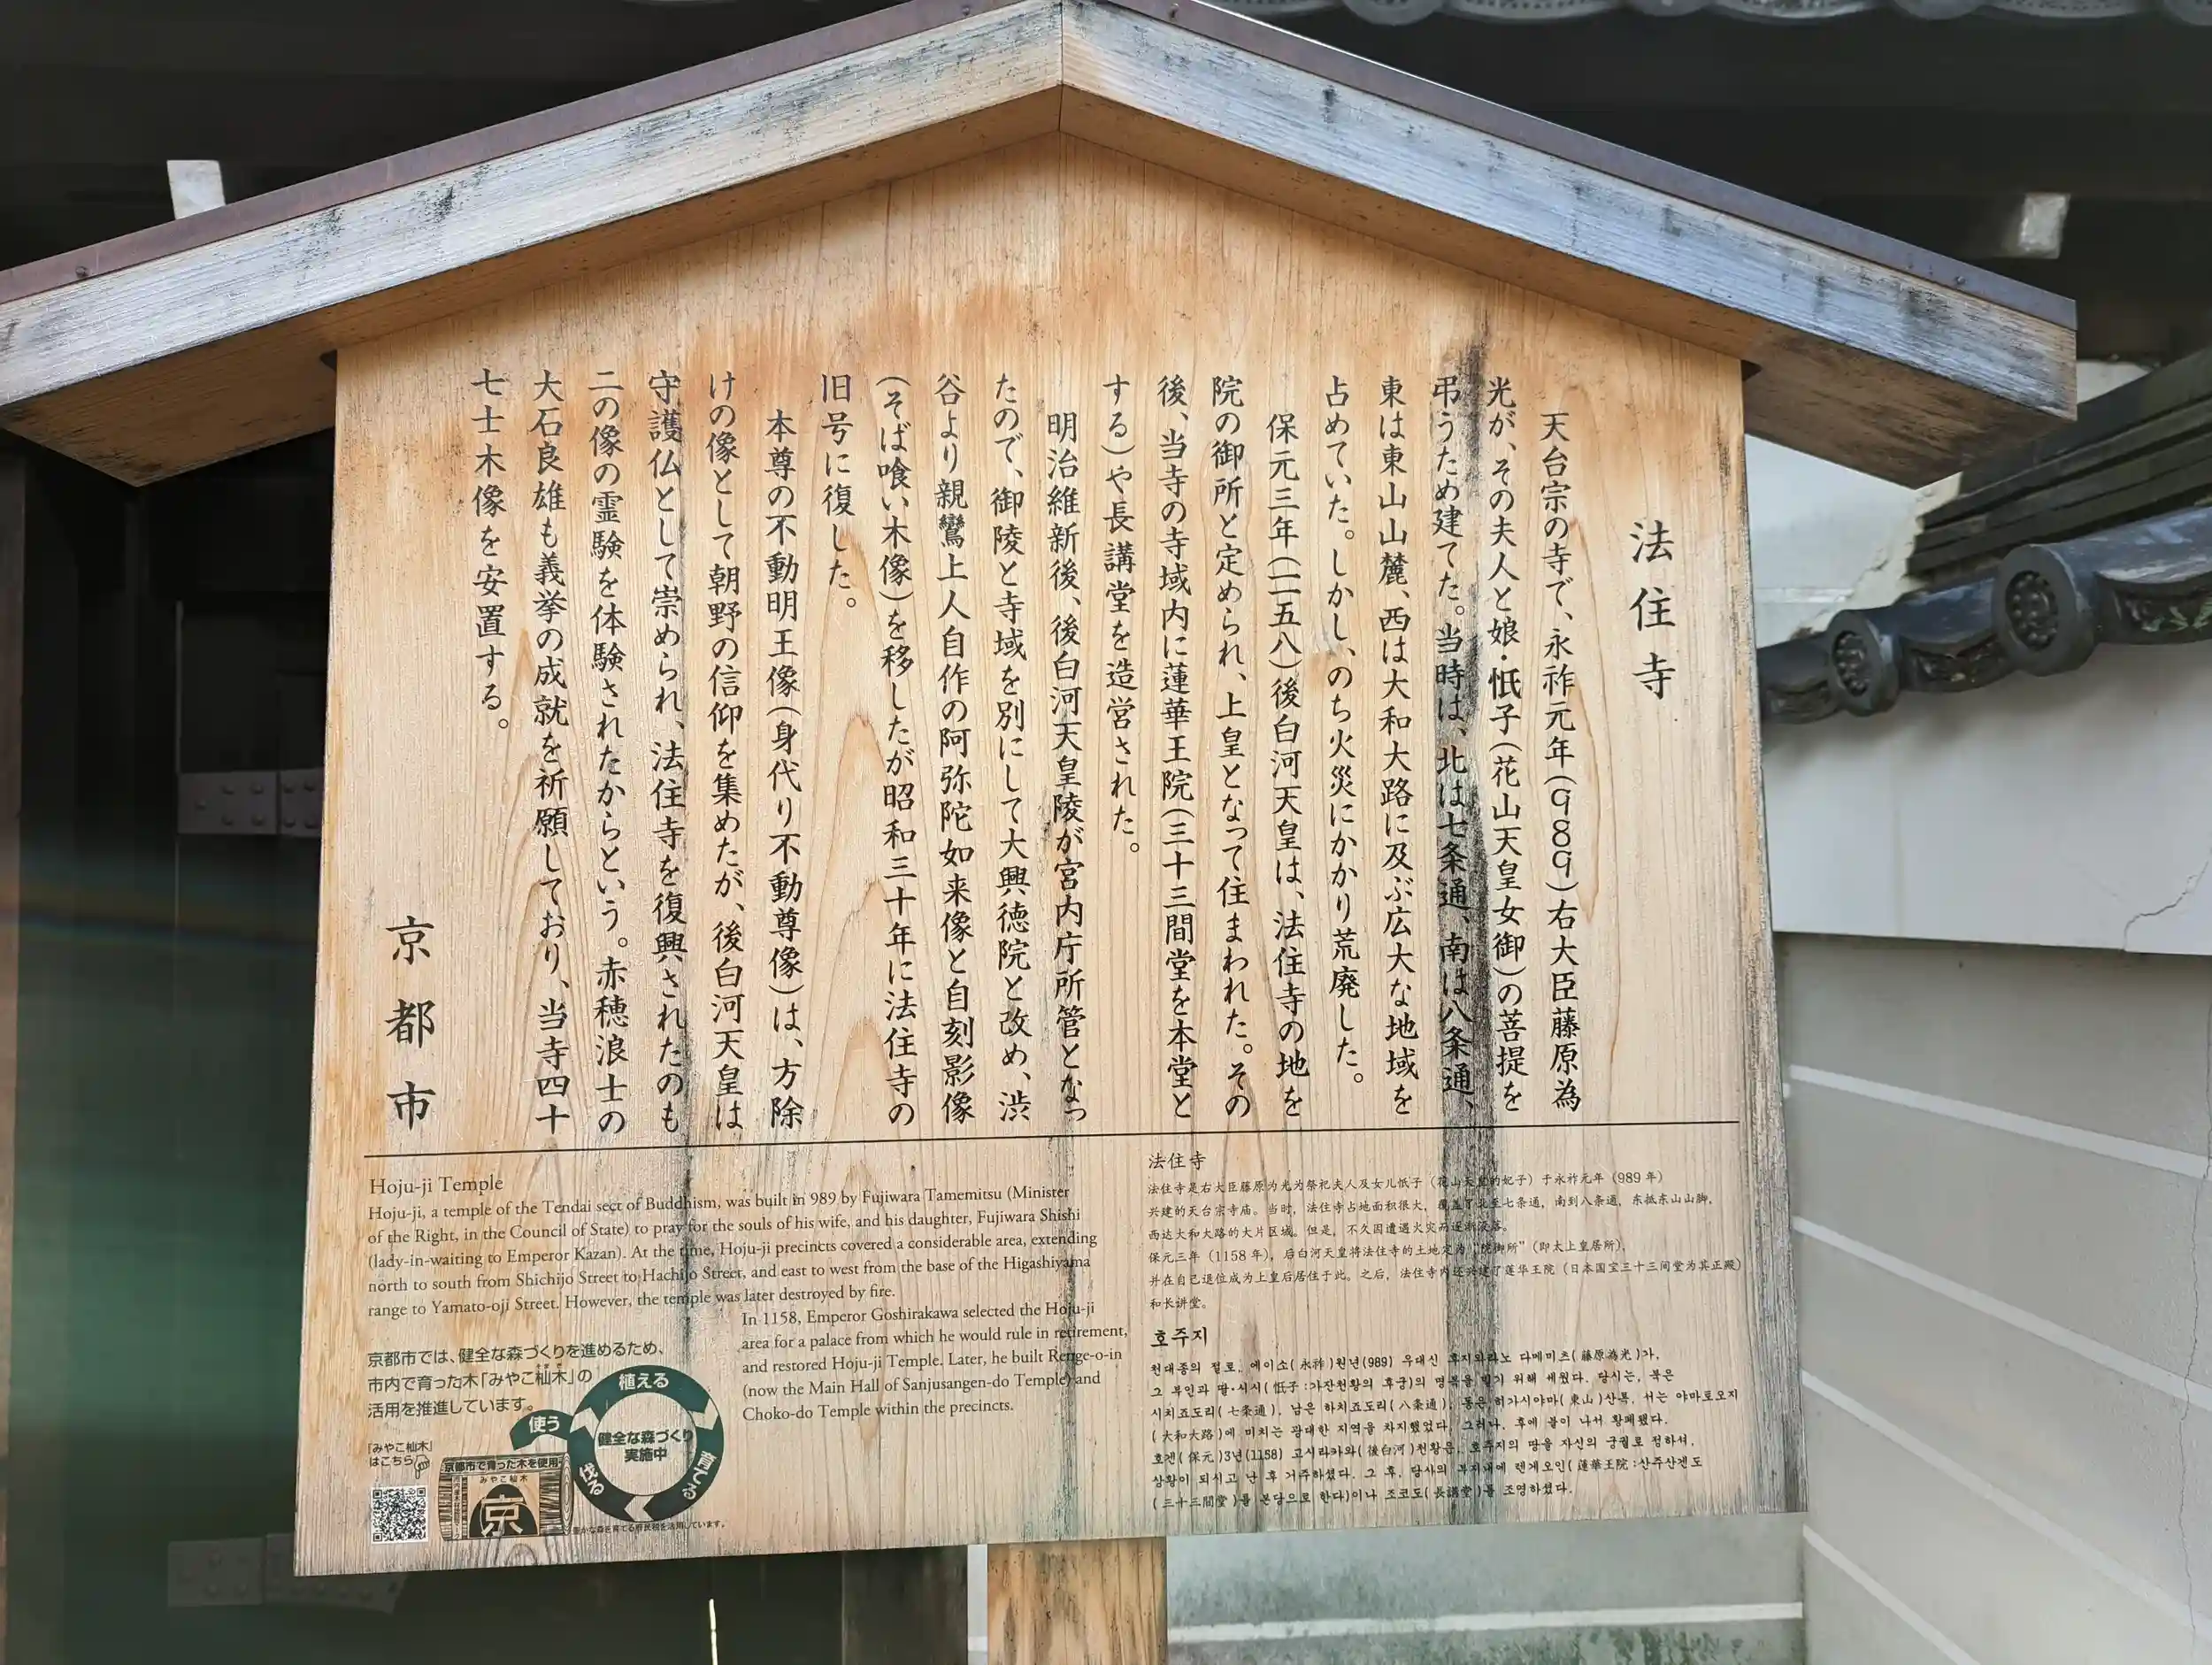 法住寺
天台宗の寺で、永祚元年(989)右大臣藤原為
光が、その夫人と娘・忯子(花山天皇女御)の菩提を
弔うため建てた。当時は、北は七条通、南は八条通、
東は東山山麓、西は大和大路に及ぶ広大な地域を
占めていた。しかし、のち火災にかかり荒廃した。
保元三年(一一五八)後白河天皇は、法住寺の地を
院の御所と定められ、上皇となって住まわれた。その
後、当寺の寺域内に蓮華王院(三十三間堂を本堂と
する)や長講堂を造営された。
明治維新後、後白河天皇陵が宮内庁所管となっ
たので、御陵と寺域を別にして大興徳院と改め、渋
谷より親鸞上人自作の阿弥陀如来像と自刻影像
(そば喰い木像)を移したが昭和三十年に法住寺の
旧号に復した。
本尊の不動明王像(身代り不動尊像)は、方除
けの像として朝野の信仰を集めたが、後白河天皇は
守護仏として崇められ、法住寺を復興されたのも
二の像の霊験を体験されたからという。赤穂浪士の
大石良雄も義挙の成就を祈願しており、当寺四十
七士木像を安置する。
京都市
Hoju-ji Temple
Hoju-ji, a temple of the Tendai sect of Buddhism, was built in 989 by Fujiwara Tamemitsu (Minister
of the Right, in the Council of State) to pray for the souls of his wife, and his daughter, Fujiwara Shishi
(lady-in-waiting to Emperor Kazan). At the time, Hoju-ji precincts covered a considerable area, extending
north to south from Shichijo Street to Hachijo Street, and east to west from the base of the Higashiyama
range to Yamato-oji Street. However, the temple was later destroyed by fire.
In 1158, Emperor Goshirakawa selected the Hoju-ji
area for a palace from which he would rule in retirement,
and restored Hoju-ji Temple. Later, he built Renge-o-in
(now the Main Hall of Sanjusangen-do Temple) and
Choko-do Temple within the precincts.
京都市では、健全な森づくりを進めるため、
市内で育った木「みやこ杣木」の
活用を推進しています。
「みやこ杣木」
はこちら
植える
育てる
伐る
使う
健全な森づくり
実施中
京都市で育った木を使用
みやこ杣木
京
豊かな森を育てる府民税を活用しています。
法住寺
法住寺是右大臣藤原为光为祭祀夫人及女儿忯子（花山天皇的妃子）于永祚元年（989年）
兴建的天台宗寺庙。当时，法住寺占地面积很大，覆盖了北至七条通，南到八条通，东抵东山山脚，
西达大和大路的大片区域。但是，不久因遭遇火灾而逐渐没落。
保元三年（1158年），后白河天皇将法住寺的土地定为“院御所”（即太上皇居所），
并在自己退位成为上皇后居住于此。之后，法住寺内还兴建了莲华王院（日本国宝三十三间堂为其正殿）
和长讲堂。
호주지
천대종의 절로, 에이소(永祚)원년(989) 우대신 후지와라노 다메미츠(藤原為光)가,
그 부인과 딸·시시(忯子:가잔천황의 후궁)의 명복을 빌기 위해 세웠다. 당시는, 북은
시치죠도리(七条通), 남은 하치죠도리(八条通), 동은 히가시야마(東山)산록, 서는 야마토오지
(大和大路)에 미치는 광대한 지역을 차지했었다. 그러나, 후에 불이 나서 황폐됐다.
호겐(保元)3년(1158) 고시라카와(後白河)천황은, 호주지의 땅을 자신의 궁궐로 정하셔,
상황이 되시고 난 후 거주하셨다. 그 후, 당사의 부지내에 렌게오인(蓮華王院:산주산겐도
(三十三間堂)를 본당으로 한다)이나 조코도(長講堂)를 조영하셨다.